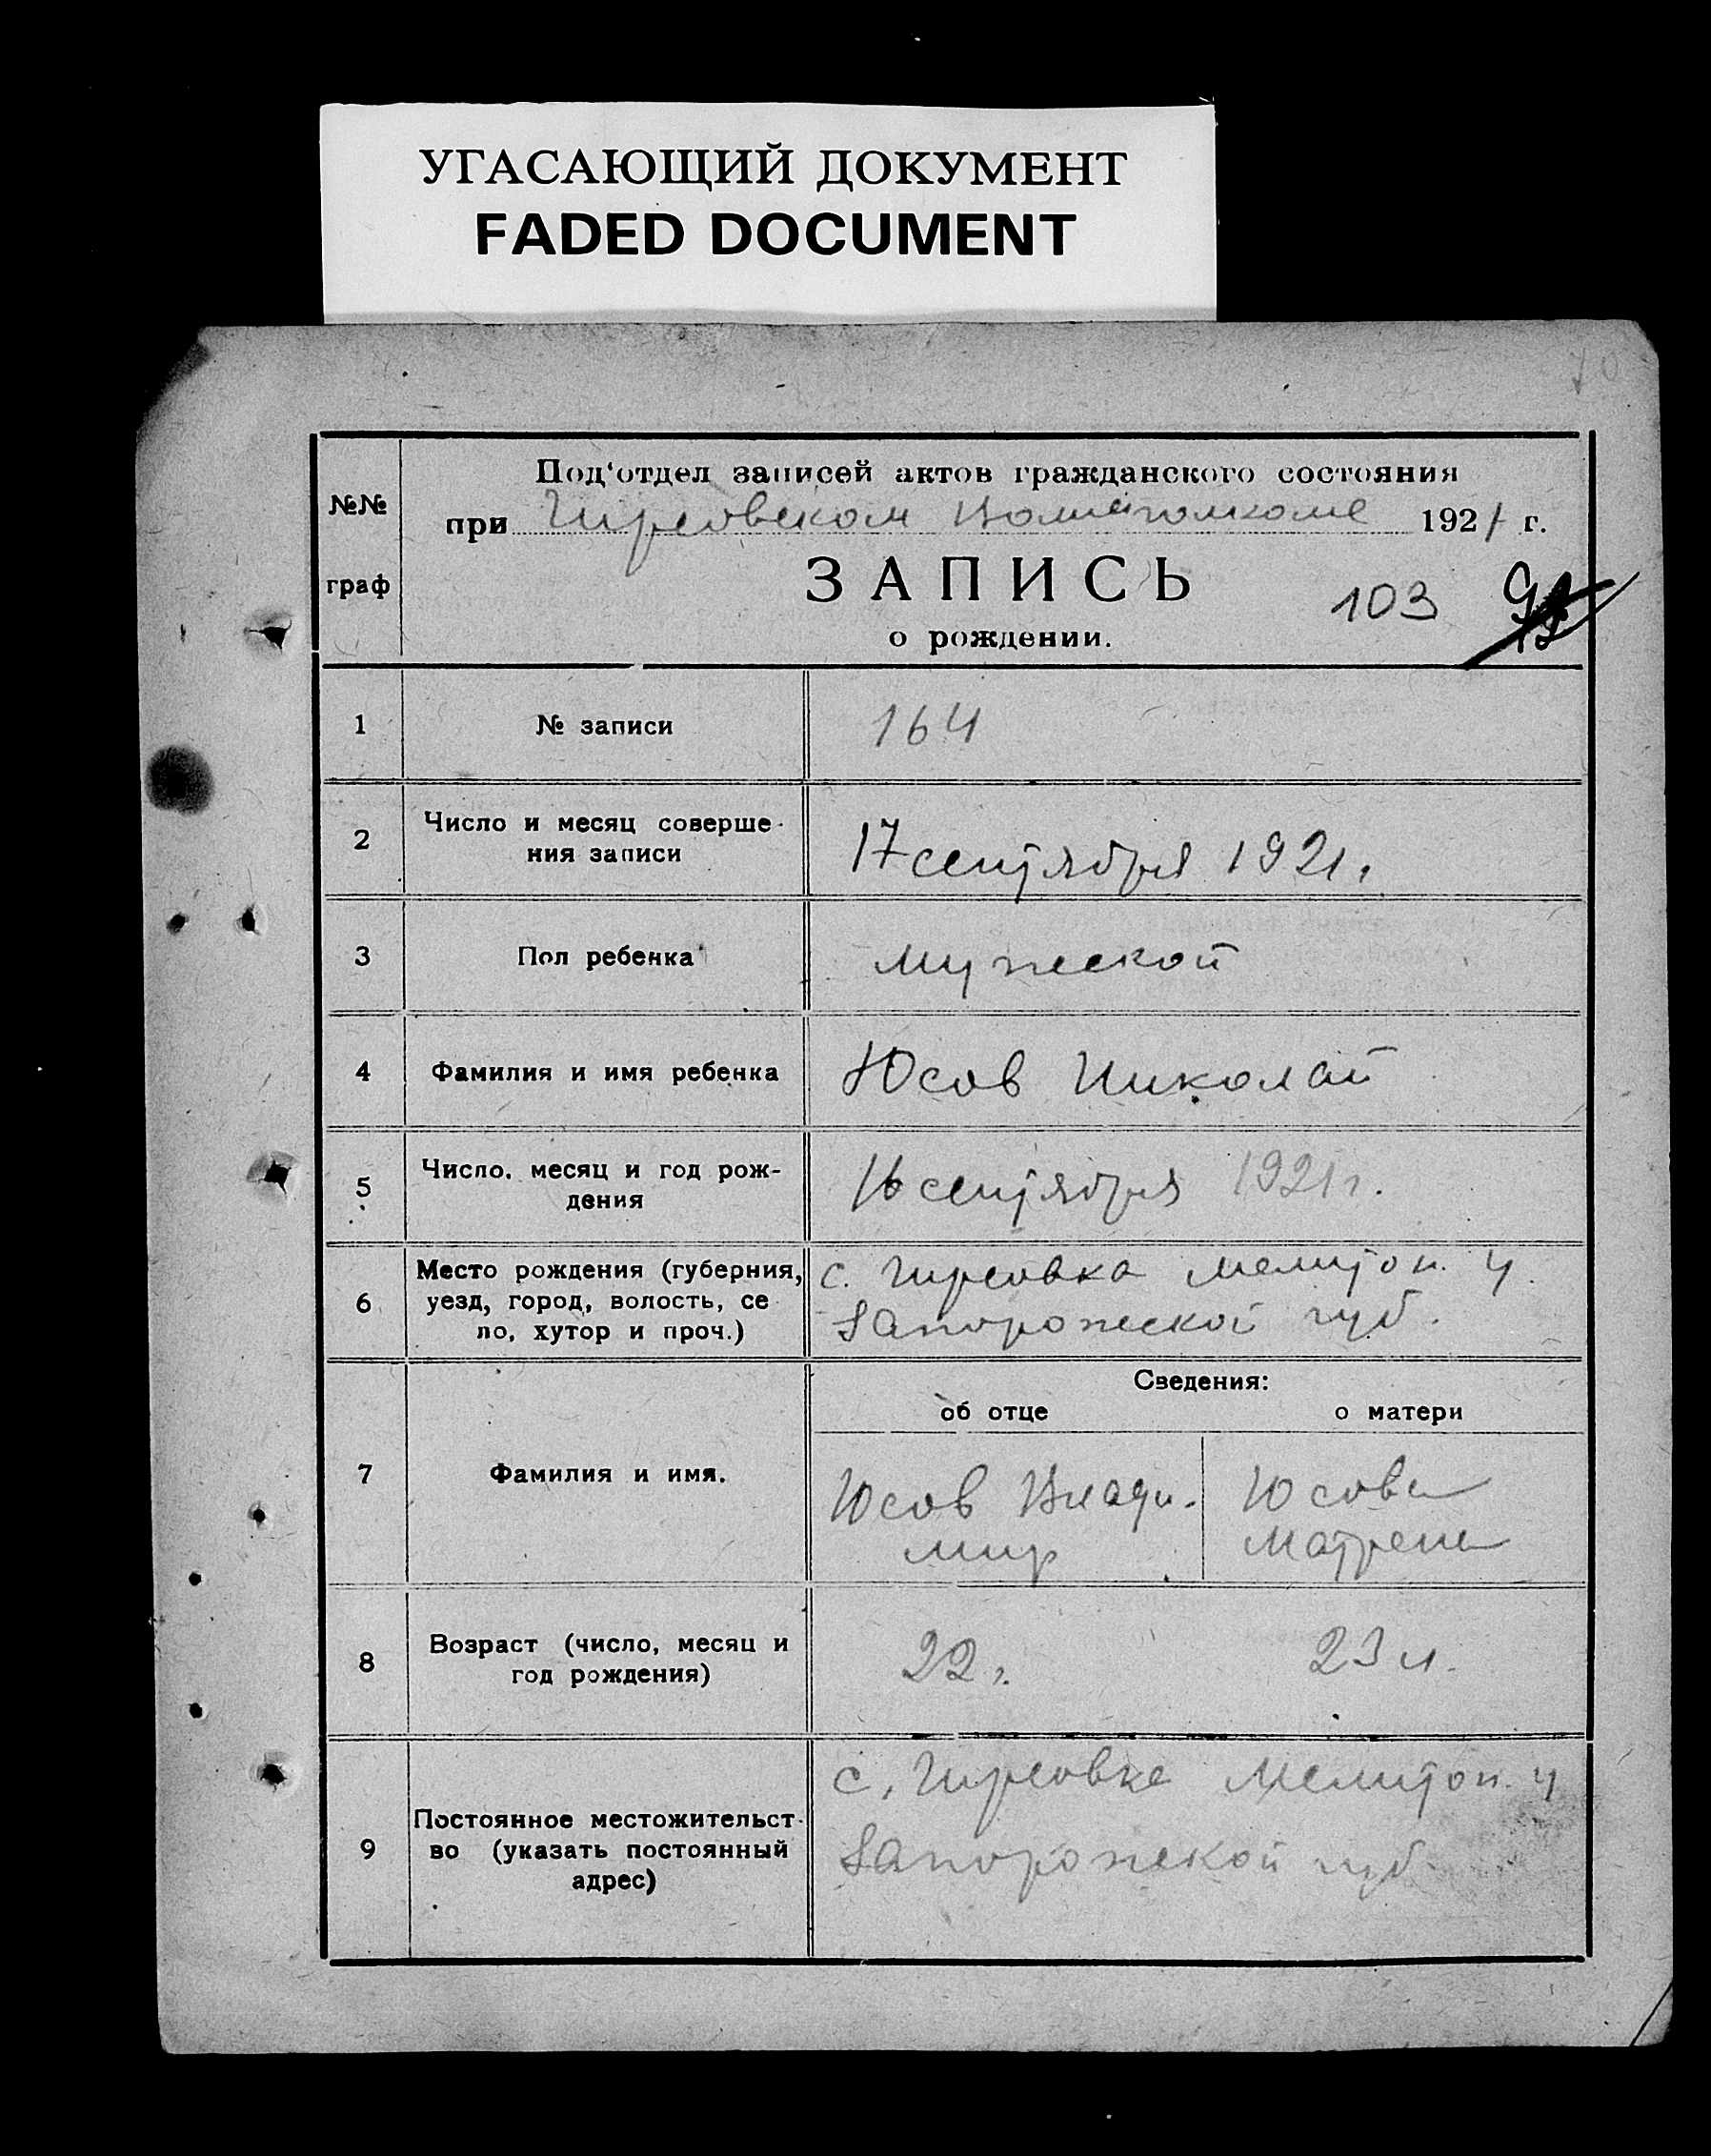 УГАСАЮЩИЙ ДОКУМЕНТ
FADED DOCUMENT
70
№№
граф
Под'отдел записей актов гражданского состояния
при Гирсовском Волисполкоме 1921 г.
ЗАПИСЬ
103
о рождении.
1 № записи 164
2 Число и месяц соверше-
ния записи
17 сентября 1921 г.
3 Пол ребенка мужской
4 Фамилия и имя ребенка Юсов Николай
5 Число, месяц и год рож-
дения
16 сентября 1921 г.
6 Место рождения (губерния,
уезд, город, волость, се
ло, хутор и проч.)
с. Гирсовка Мелитоп. у.
Запорожской губ.
Сведения:
об отце о матери
7 Фамилия и имя.
Юсов Влади-
мир
Юсова
Матрена
8 Возраст (число, месяц и
год рождения)
22 г. 23 л.
9 Постоянное местожительст-
во (указать постоянный
адрес)
с. Гирсовка Мелитоп. у
Запорожской губ.